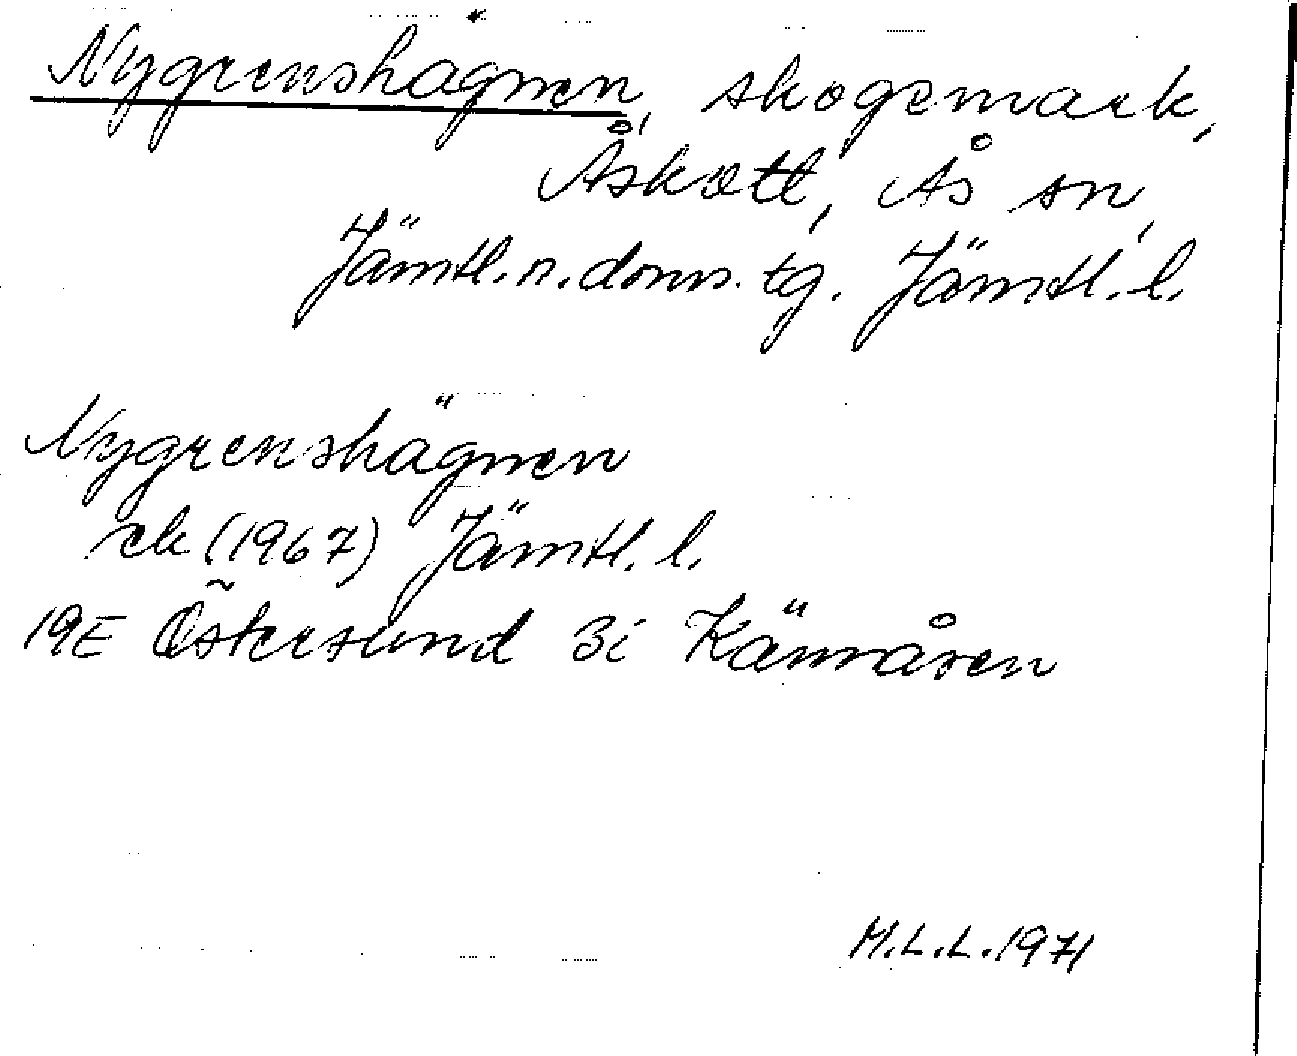 Nygrenshägnen, skogsmark,
Åskott, Ås sn,
Jämtl. n. doms. tg. Jämtl. l.
Nygrenshägnen
ek (1967) Jämtl. l.
19E Östersund 3i Kännåsen
M.L.L. 1971